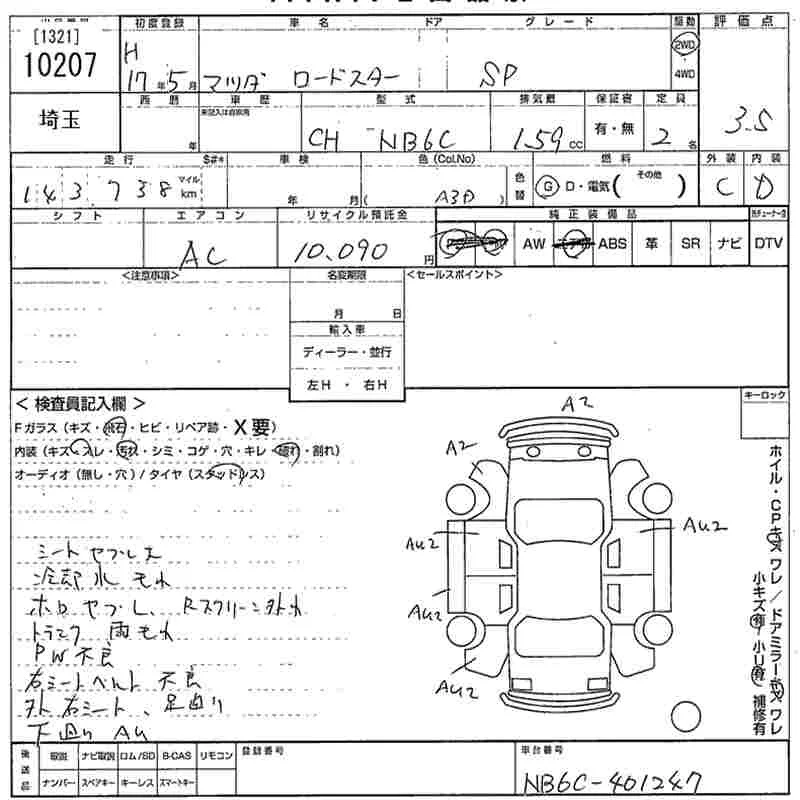 [1321]
10207
埼玉
初度登録
H
17年5月
車名 ドア グレード
マツダ ロードスター SP
駆動
2WD
4WD
評価点
3.5
西暦
年
車歴
未記入は自家用
型式
CH NB6C
排気量
1.59 cc
保証書
有・無
定員
2名
走行
143,738
マイル
km
S#*
車検
年 月
色(Col.No)
( A3P )
色替
燃料
G D・電気( その他 )
外装
C
内装
D
シフト
エアコン
AC
リサイクル預託金
10,090円
純正装備品
AW ABS 革 SR ナビ DTV
<注意事項>
名変期限
月 日
輸入車
ディーラー・並行
左H・右H
<セールスポイント>
<検査員記入欄>
Fガラス(キズ・飛石・ヒビ・リペア跡・X要)
内装(キズ・スレ・汚れ・シミ・コゲ・穴・キレ・破れ・割れ)
オーディオ(無し・穴)/タイヤ(スタッドレス)
シートヤブレ大
冷却水モレ
ホロヤブレ、Rスクリーン外れ
トランク雨モレ
PW不良
右シートベルト不良
外右シート、足廻り
下廻りAU
A2
A2
AU2
AU2
AU2
AU2
キーロック
ホイル・CPキズワレ/ドアミラーキズワレ
小キズ有 小U有 補修有
後送品
取説 ナビ取説 ロム/SD B-CAS リモコン
ナンバー スペアキー キーレス スマートキー
登録番号
車台番号
NB6C-401247